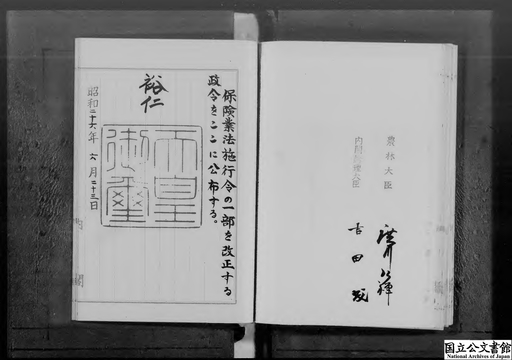 農林大臣 廣川弘禅
内閣総理大臣 吉田茂
保険業法施行令の一部を改正する
政令をここに公布する。
裕仁
天皇
御璽
昭和二十六年 六月二十三日
内閣
国立公文書館
National Archives of Japan